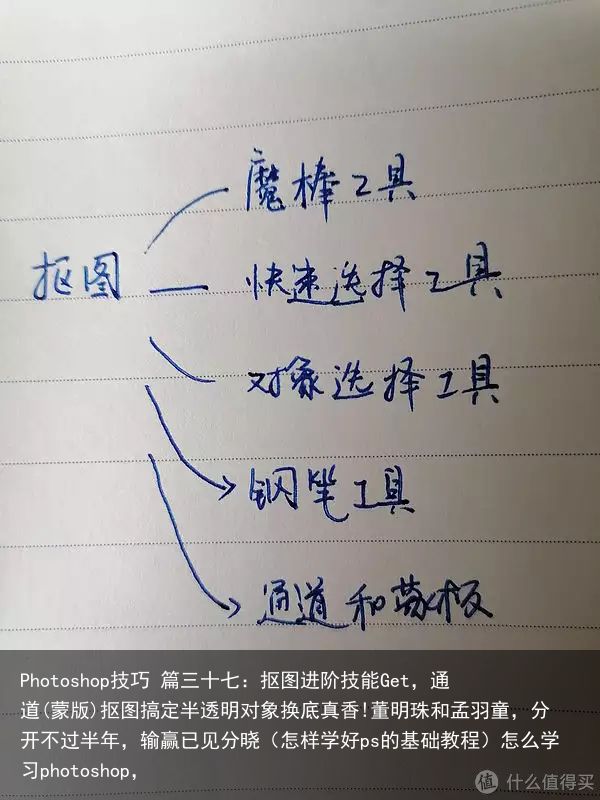 魔棒工具
抠图
快速选择工具
对象选择工具
钢笔工具
通道和蒙板
Photoshop技巧 篇三十七：抠图进阶技能Get，通
道(蒙版)抠图搞定半透明对象换底真香!董明珠和孟羽童，分
开不过半年，输赢已见分晓（怎样学好ps的基础教程）怎么学
习photoshop，
值 什么值得买